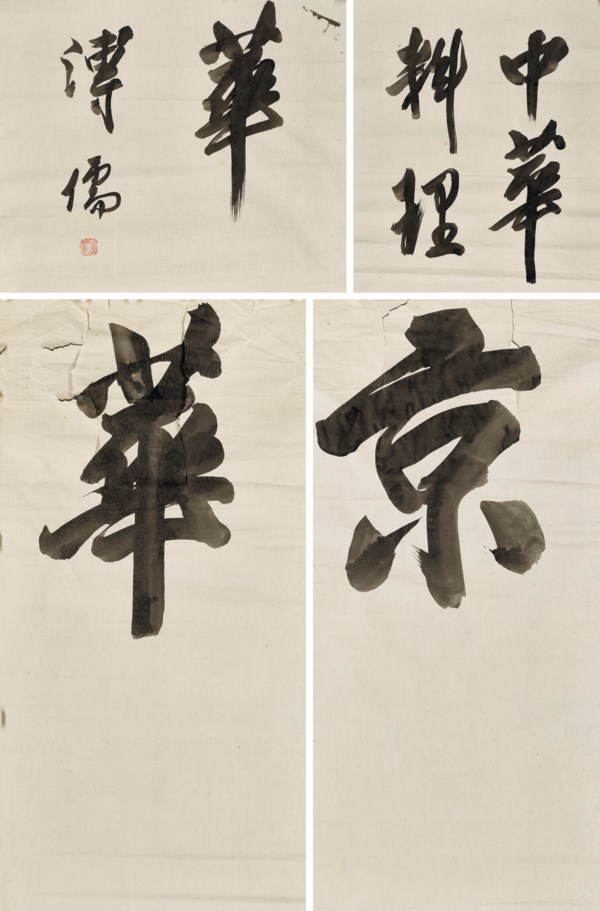 中華
料理
華
溥儒
京
華